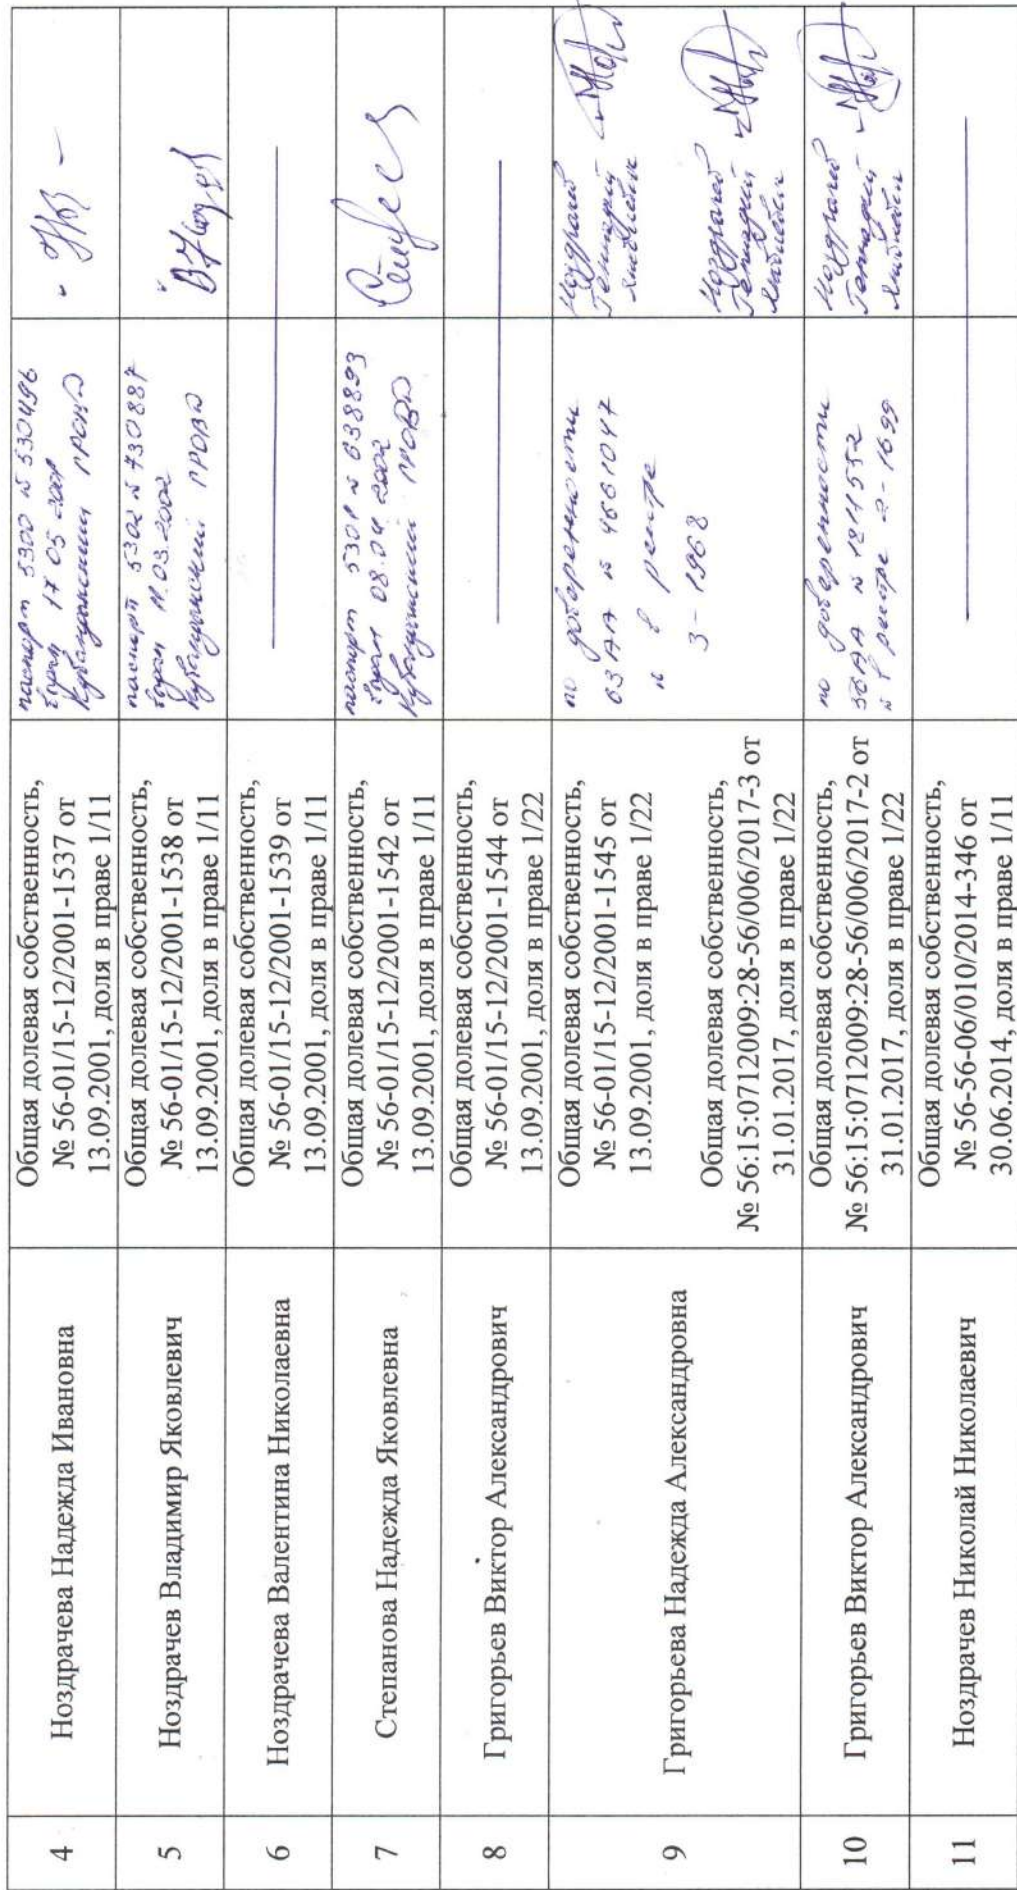 4
Ноздрачева Надежда Ивановна
Общая долевая собственность,
№ 56-01/15-12/2001-1537 от
13.09.2001, доля в праве 1/11
паспорт 5300 № 530496
17 05 2001
РОВД
5
Ноздрачев Владимир Яковлевич
Общая долевая собственность,
№ 56-01/15-12/2001-1538 от
13.09.2001, доля в праве 1/11
паспорт 5302 № 730887
11.03.2002
РОВД
6
Ноздрачева Валентина Николаевна
Общая долевая собственность,
№ 56-01/15-12/2001-1539 от
13.09.2001, доля в праве 1/11
7
Степанова Надежда Яковлевна
Общая долевая собственность,
№ 56-01/15-12/2001-1542 от
13.09.2001, доля в праве 1/11
паспорт 5301 № 638893
08.04 2002
РОВД
8
Григорьев Виктор Александрович
Общая долевая собственность,
№ 56-01/15-12/2001-1544 от
13.09.2001, доля в праве 1/22
9
Григорьева Надежда Александровна
Общая долевая собственность,
№ 56-01/15-12/2001-1545 от
13.09.2001, доля в праве 1/22
Общая долевая собственность,
№ 56:15:0712009:28-56/006/2017-3 от
31.01.2017, доля в праве 1/22
по доверенности
63 АА № 4661047
№ в реестре
3-1968
Ноздрачев
Геннадий
Ноздрачев
Геннадий
10
Григорьев Виктор Александрович
Общая долевая собственность,
№ 56:15:0712009:28-56/006/2017-2 от
31.01.2017, доля в праве 1/22
по доверенности
56АА № 1811552
№ в реестре 2-1699
Ноздрачев
Геннадий
11
Ноздрачев Николай Николаевич
Общая долевая собственность,
№ 56-56-06/010/2014-346 от
30.06.2014, доля в праве 1/11